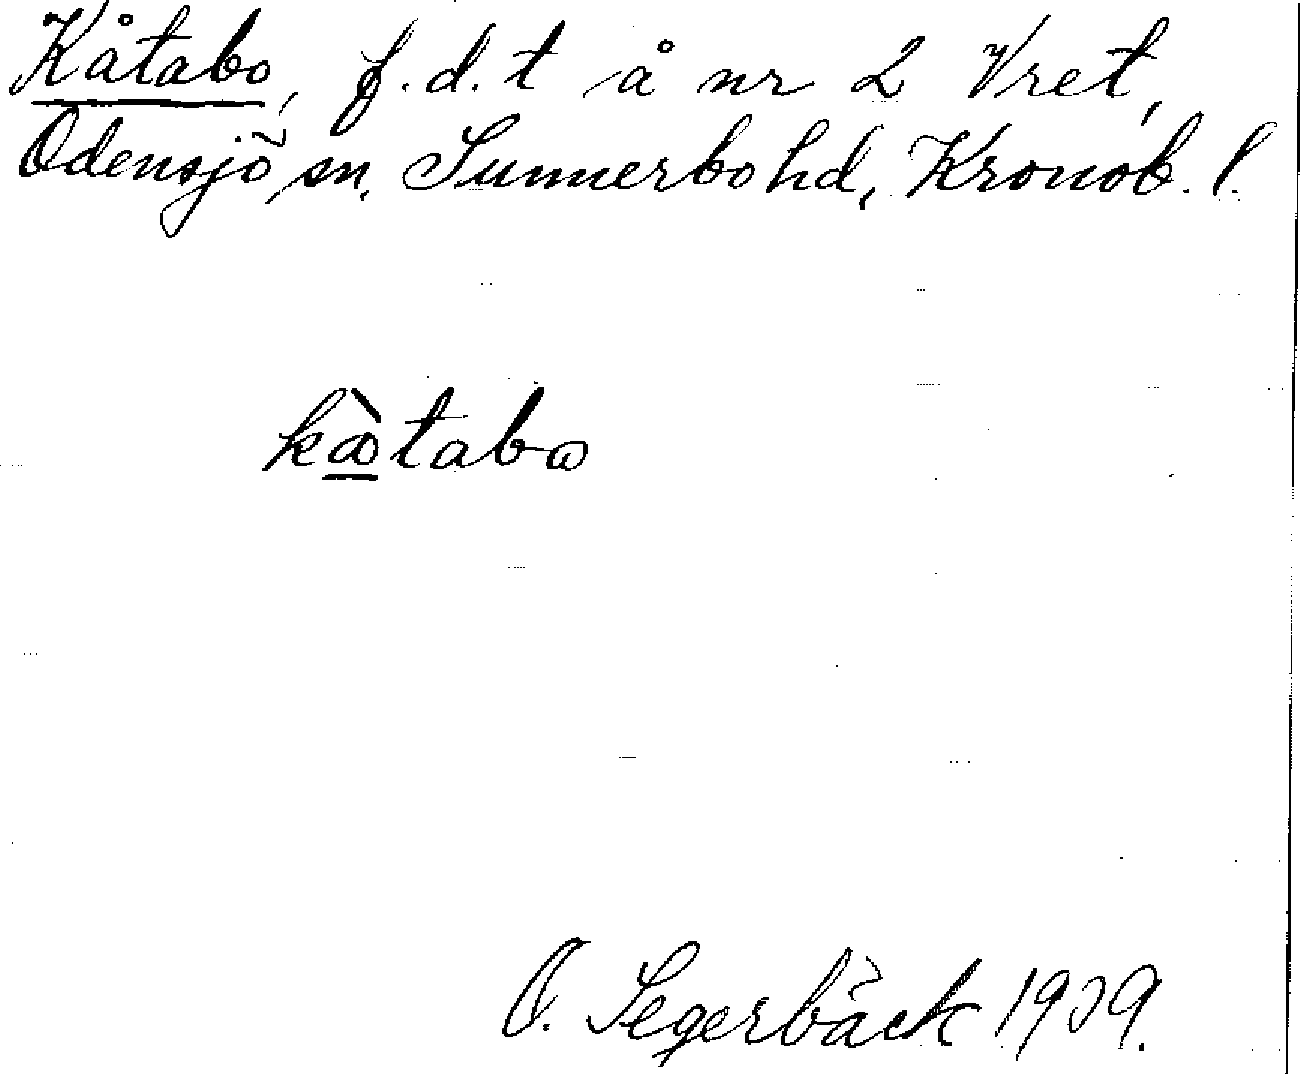 Kåtabo, f.d.t å nr 2 Vret,
Odensjö sn. Sunnerbo hd, Kronob. l.
kåtabω
O. Segerbäck 1939.